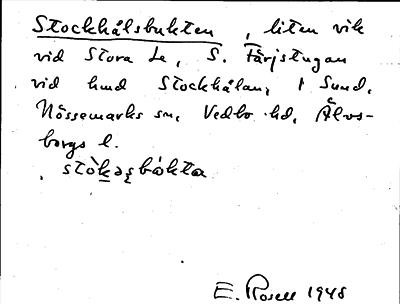 Stockhålsbukten, liten vik
vid Stora Le, S. Färjstugan
vid hmd Stockhålan, i Sund,
Nössemarks sn, Vedbo hd, Älvs-
borgs l.
E. Rosell 1945